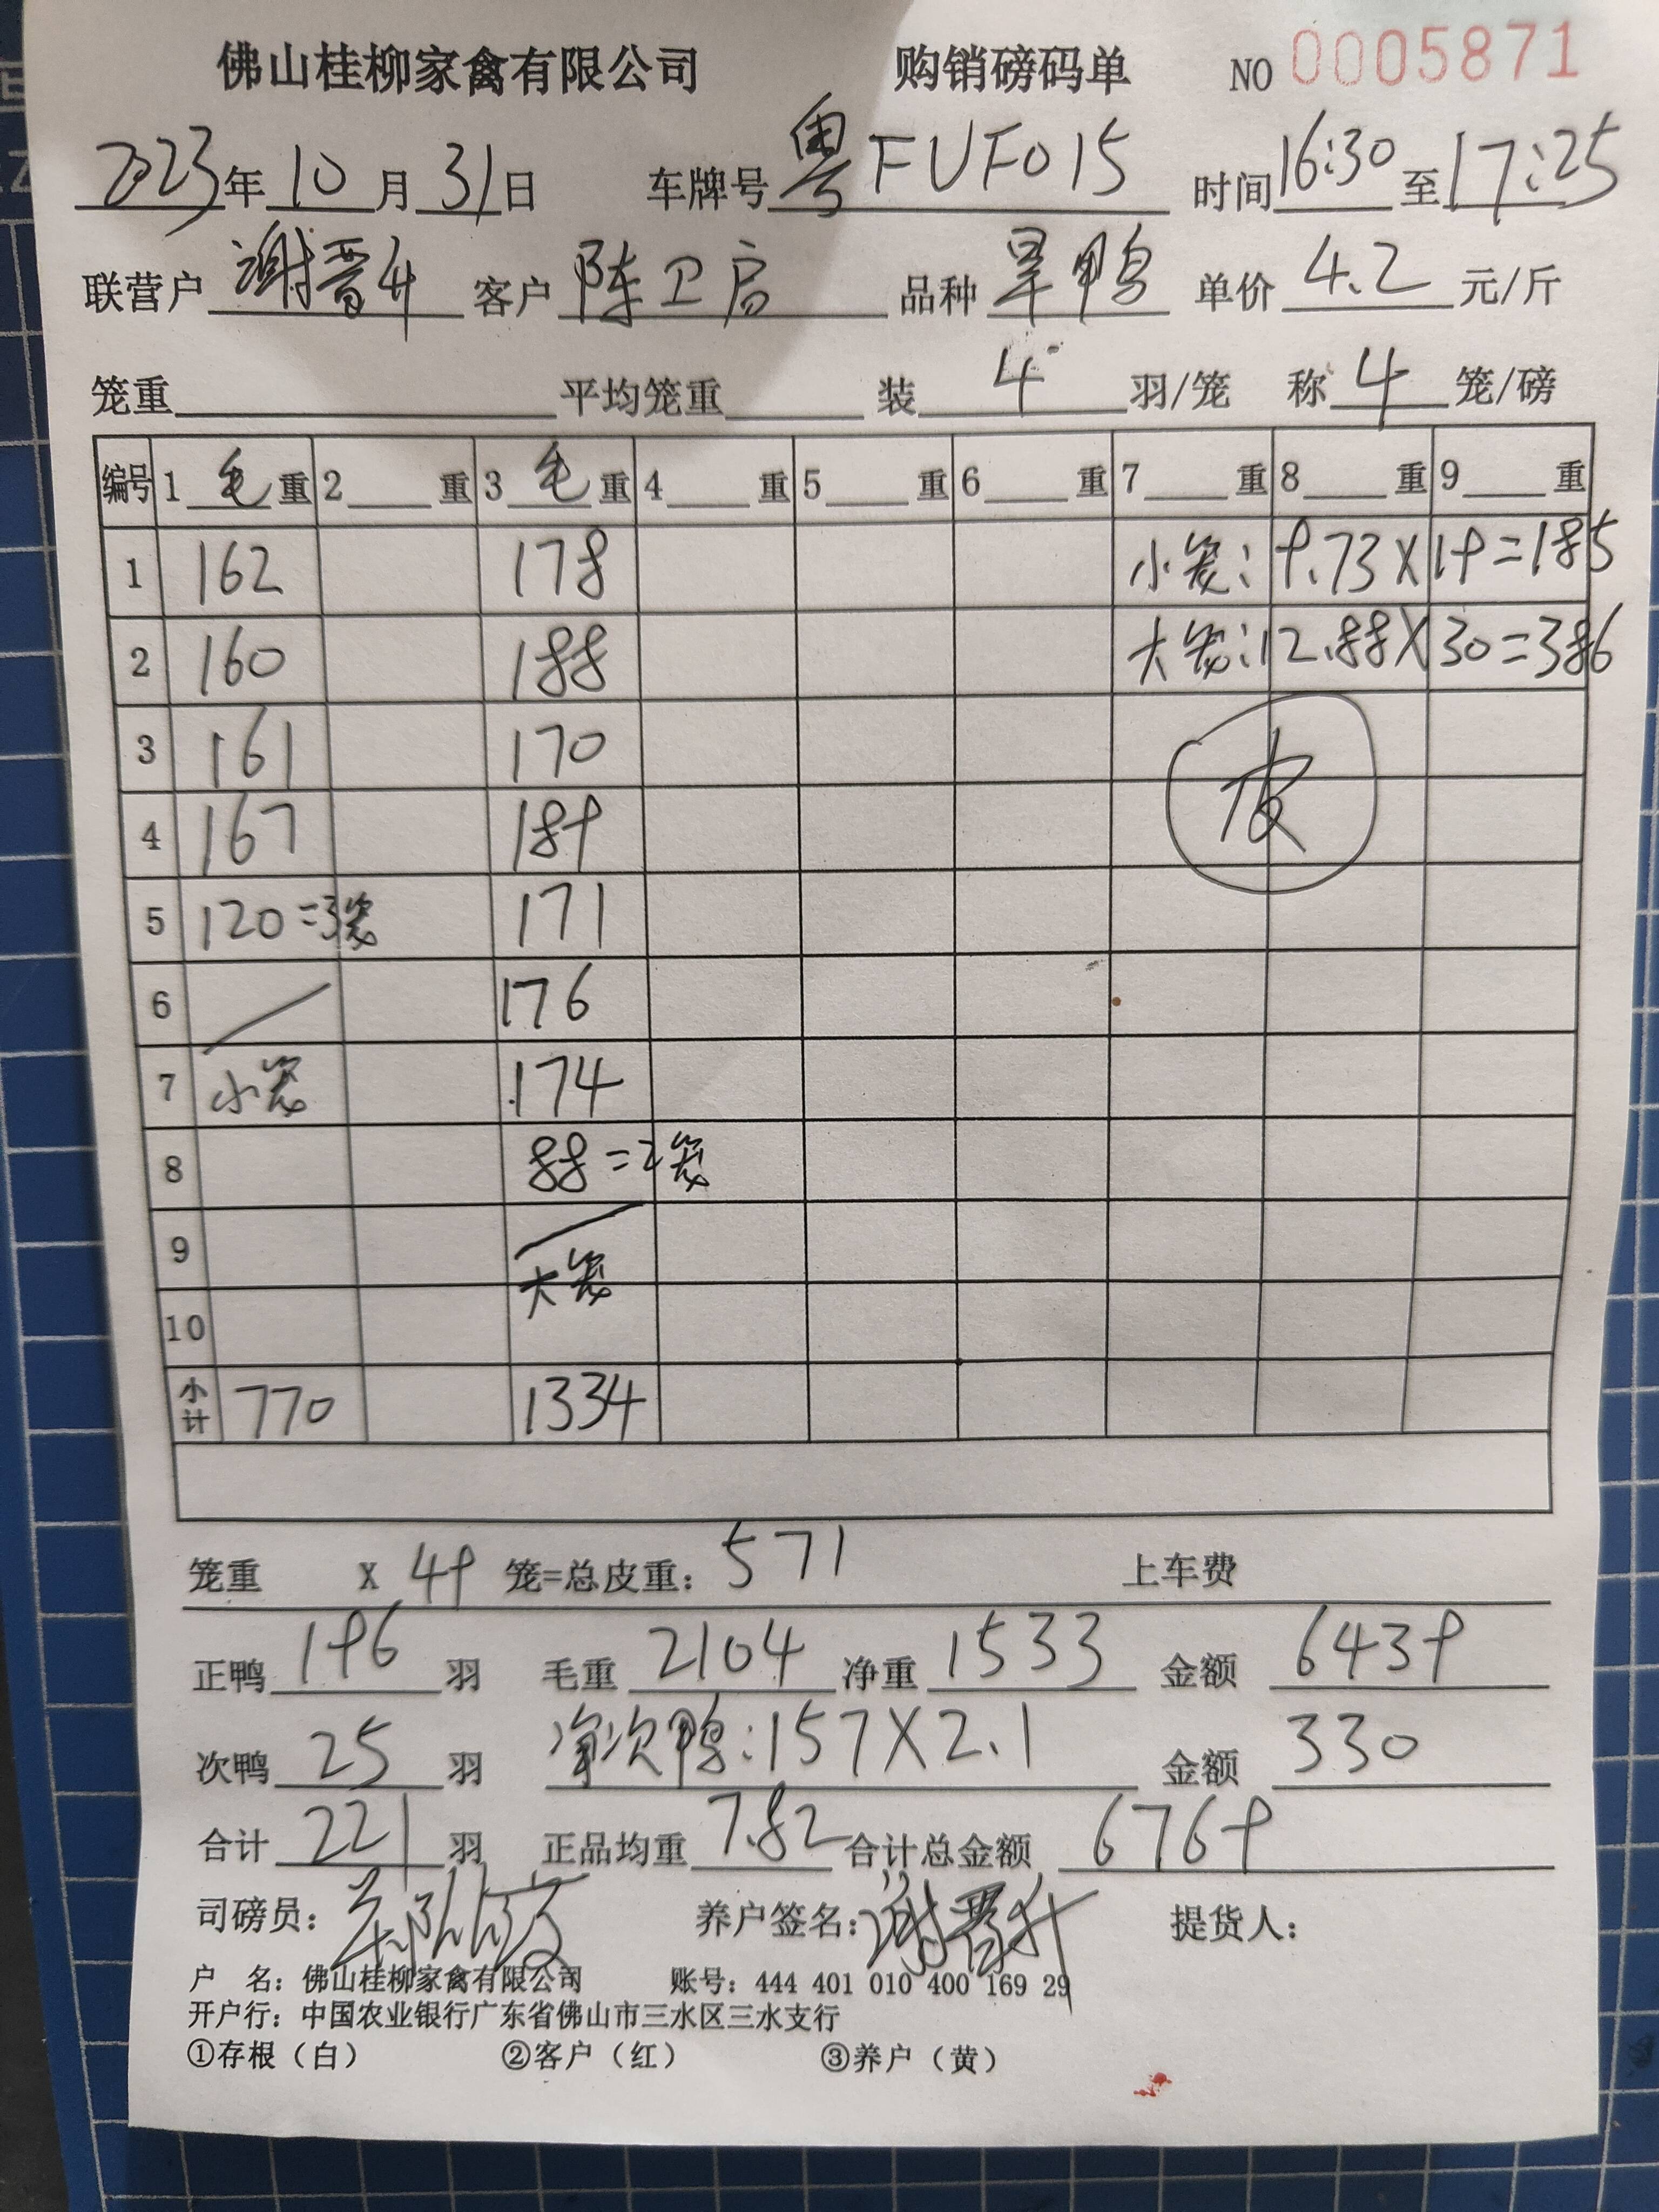 佛山桂柳家禽有限公司 购销磅码单 NO 0005871
2023年10月31日 车牌号 粤FUF015 时间16:30至17:25
联营户 谢晋升 客户 陈卫启 品种 旱鸭 单价 4.2 元/斤
笼重 平均笼重 装 4 羽/笼 称 4 笼/磅
编号 1 毛 重 2 重 3 毛 重 4 重 5 重 6 重 7 重 8 重 9 重
1 162 178 小笼: 9.73X19=185
2 160 188 大笼:12.88X30=386
3 161 170
4 167 189 皮
5 120=3笼 171
6 176
7 小笼 174
8 88=2笼
9 大笼
10
小计 770 1334
笼重 X 49 笼=总皮重: 571 上车费
正鸭 196 羽 毛重 2104 净重 1533 金额 6439
次鸭 25 羽 净次鸭:157X2.1 金额 330
合计 221 羽 正品均重 7.82 合计总金额 6769
司磅员: 养户签名:谢晋升 提货人:
户 名: 佛山桂柳家禽有限公司 账号: 444 401 010 400 169 29
开户行: 中国农业银行广东省佛山市三水区三水支行
①存根（白） ②客户（红） ③养户（黄）